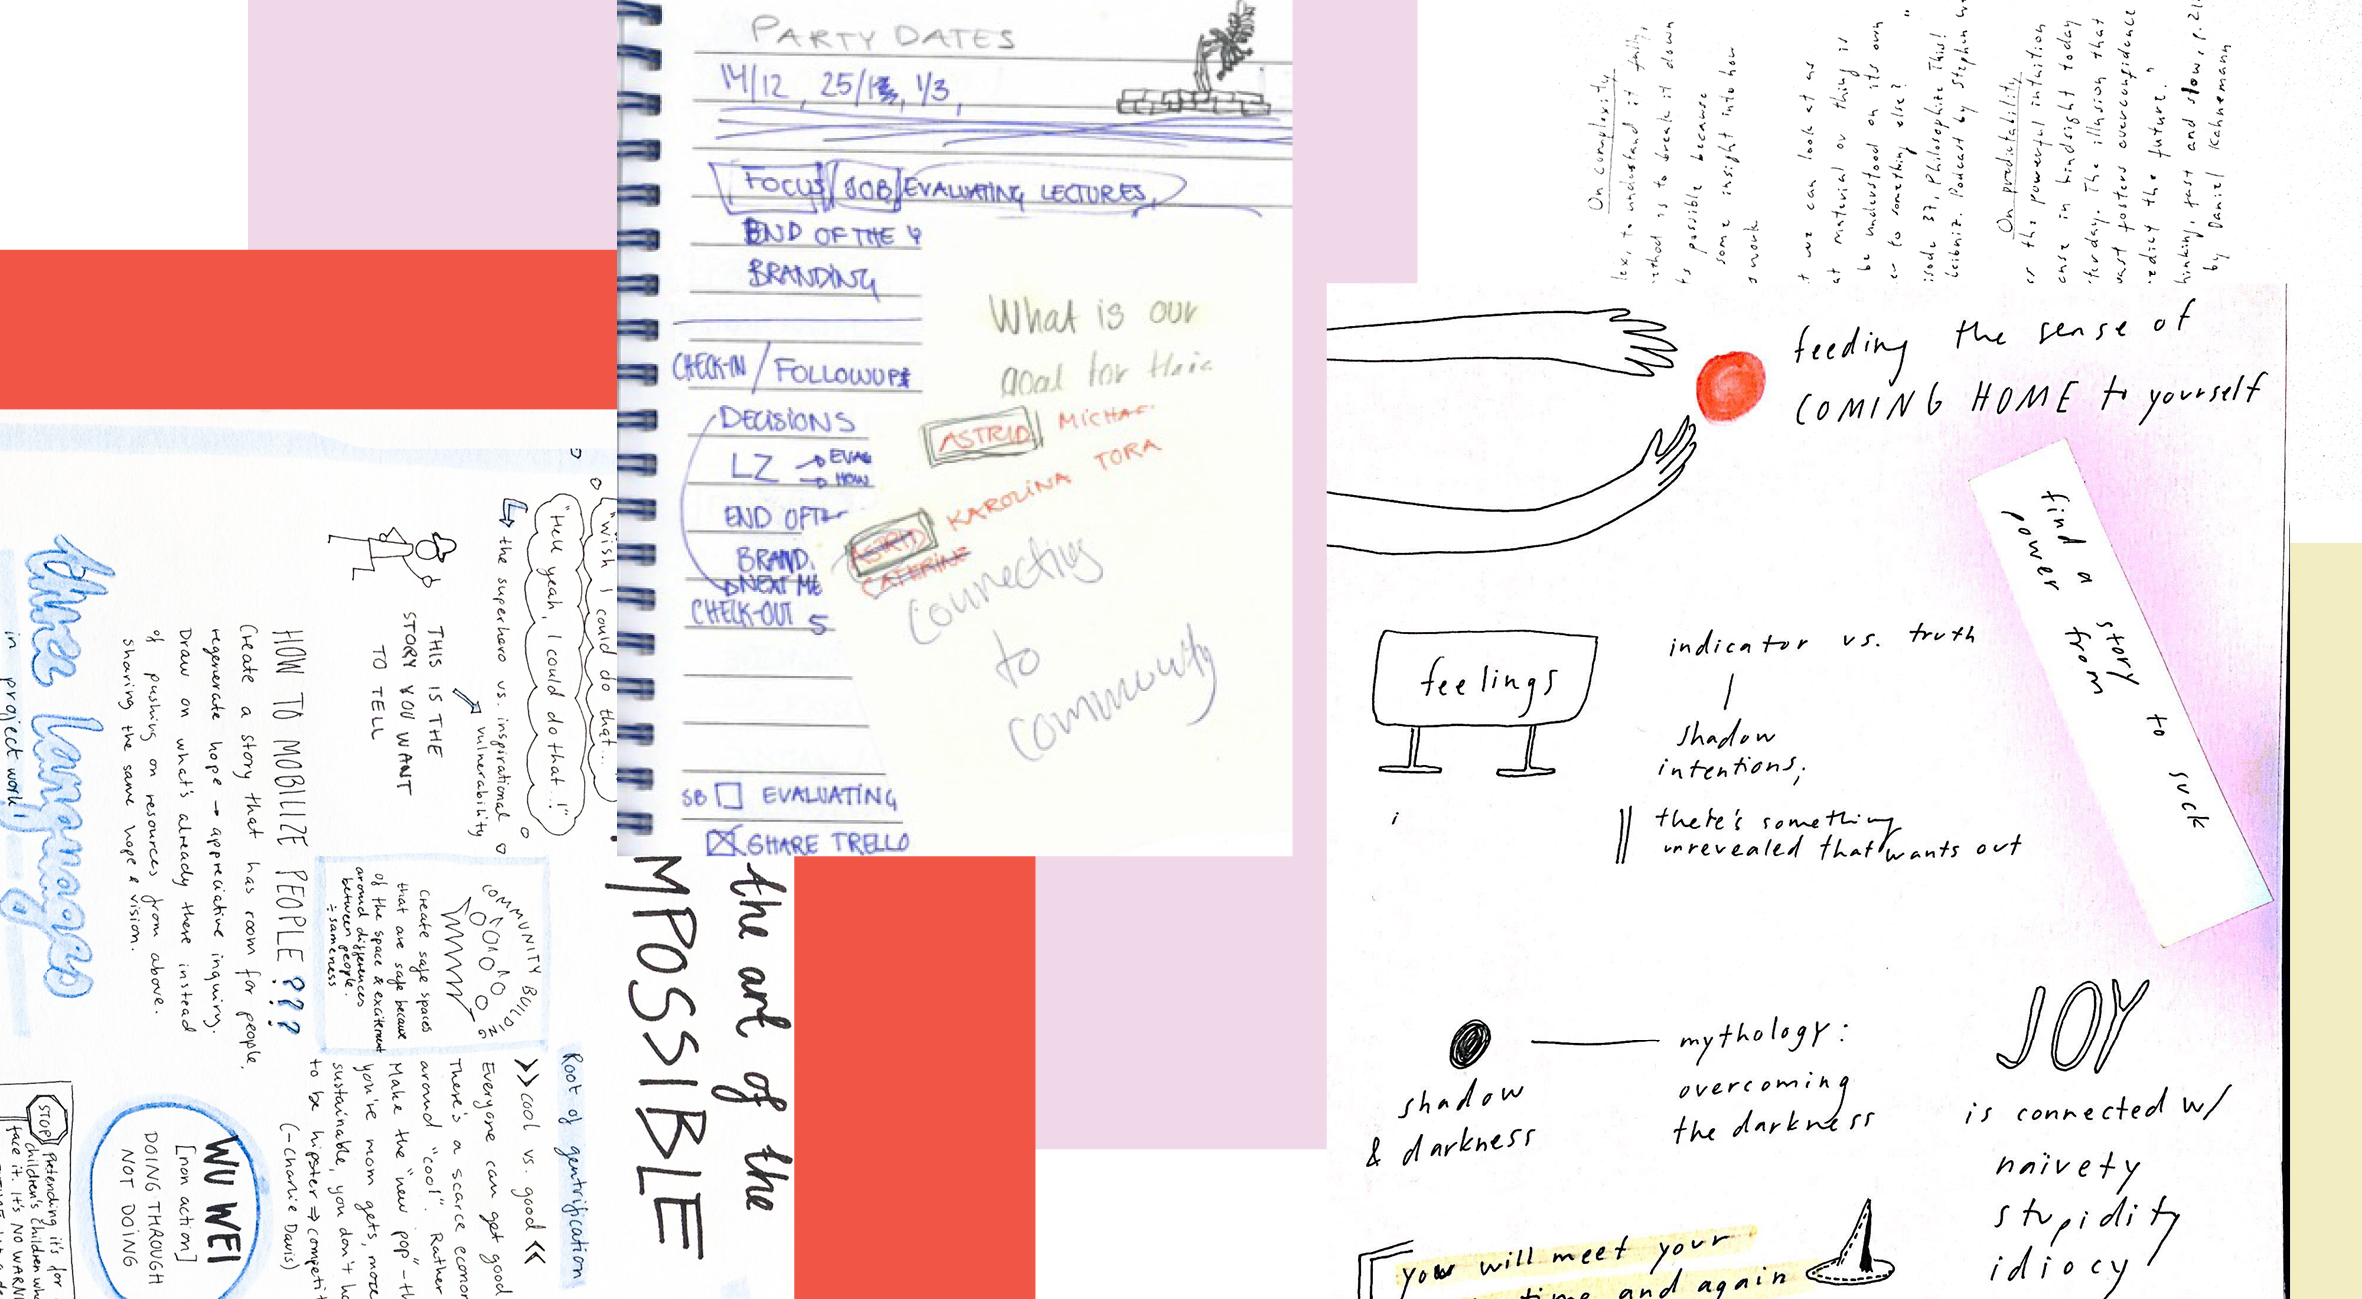 PARTY DATES
14/12, 25/1, 1/3,
FOCUS JOB EVALUATING LECTURES,
END OF THE Y
BRANDING
CHECK-IN / FOLLOWUPS
DECISIONS
LZ → EVAL
→ HOW
END OF TH
BRAND.
NEXT ME
CHECK-OUT 5
SB EVALUATING
SHARE TRELLO
What is our
goal for this
ASTRID MICHAE
KAROLINA TORA
ASTRID
CATERINE
Connecting
to
community
On complexity
lex, to understand it fully,
ethod is to break it down
ts possible because
some insight into how
s work
t we can look at as
at material or thing is
be understood on its own
er to something else? "
isode 37, Philosophize This!
Leibniz. Podcast by Stephen We
On predictability
or the powerful intuition
ense in hindsight today
terday. The illusion that
past fosters overconfidence
redict the future."
hinking, fast and slow, p. 21
by Daniel Kahnemann
feeding the sense of
COMING HOME to yourself
find a story to suck
power from
feelings
indicator vs. truth
shadow
intentions;
there's something
unrevealed that wants out
i
shadow
& darkness
mythology:
overcoming
the darkness
JOY
is connected w/
naivety
stupidity
idiocy
you will meet your
time and again
"wish I could do that...
"Hell yeah, I could do that...!"
↳ the superhero vs. inspirational
vulnerability
THIS IS THE
STORY YOU WANT
TO TELL
HOW TO MOBILIZE PEOPLE???
Create a story that has room for people.
regenerate hope → appreciative inquiry.
Draw on what's already there instead
of pushing on resources from above.
sharing the same hope & vision.
three languages
in project work
COMMUNITY BUILDING
create safe spaces
that are safe because
of the space & excitement
around differences
between people.
÷ sameness
the art of the
MPOSSIBLE
Root of gentrification
>> cool vs. good <<
Everyone can get good
There's a scarce econo
around "cool". Rather
Make the "new pop" - th
you're mom gets, more
sustainable, you don't ha
to be hipster ⇒ competit
(-Charlie Davis)
WU WEI
[non action]
DOING THROUGH
NOT DOING
STOP pretending it's for
children's children who
face it. It's NO WARNI